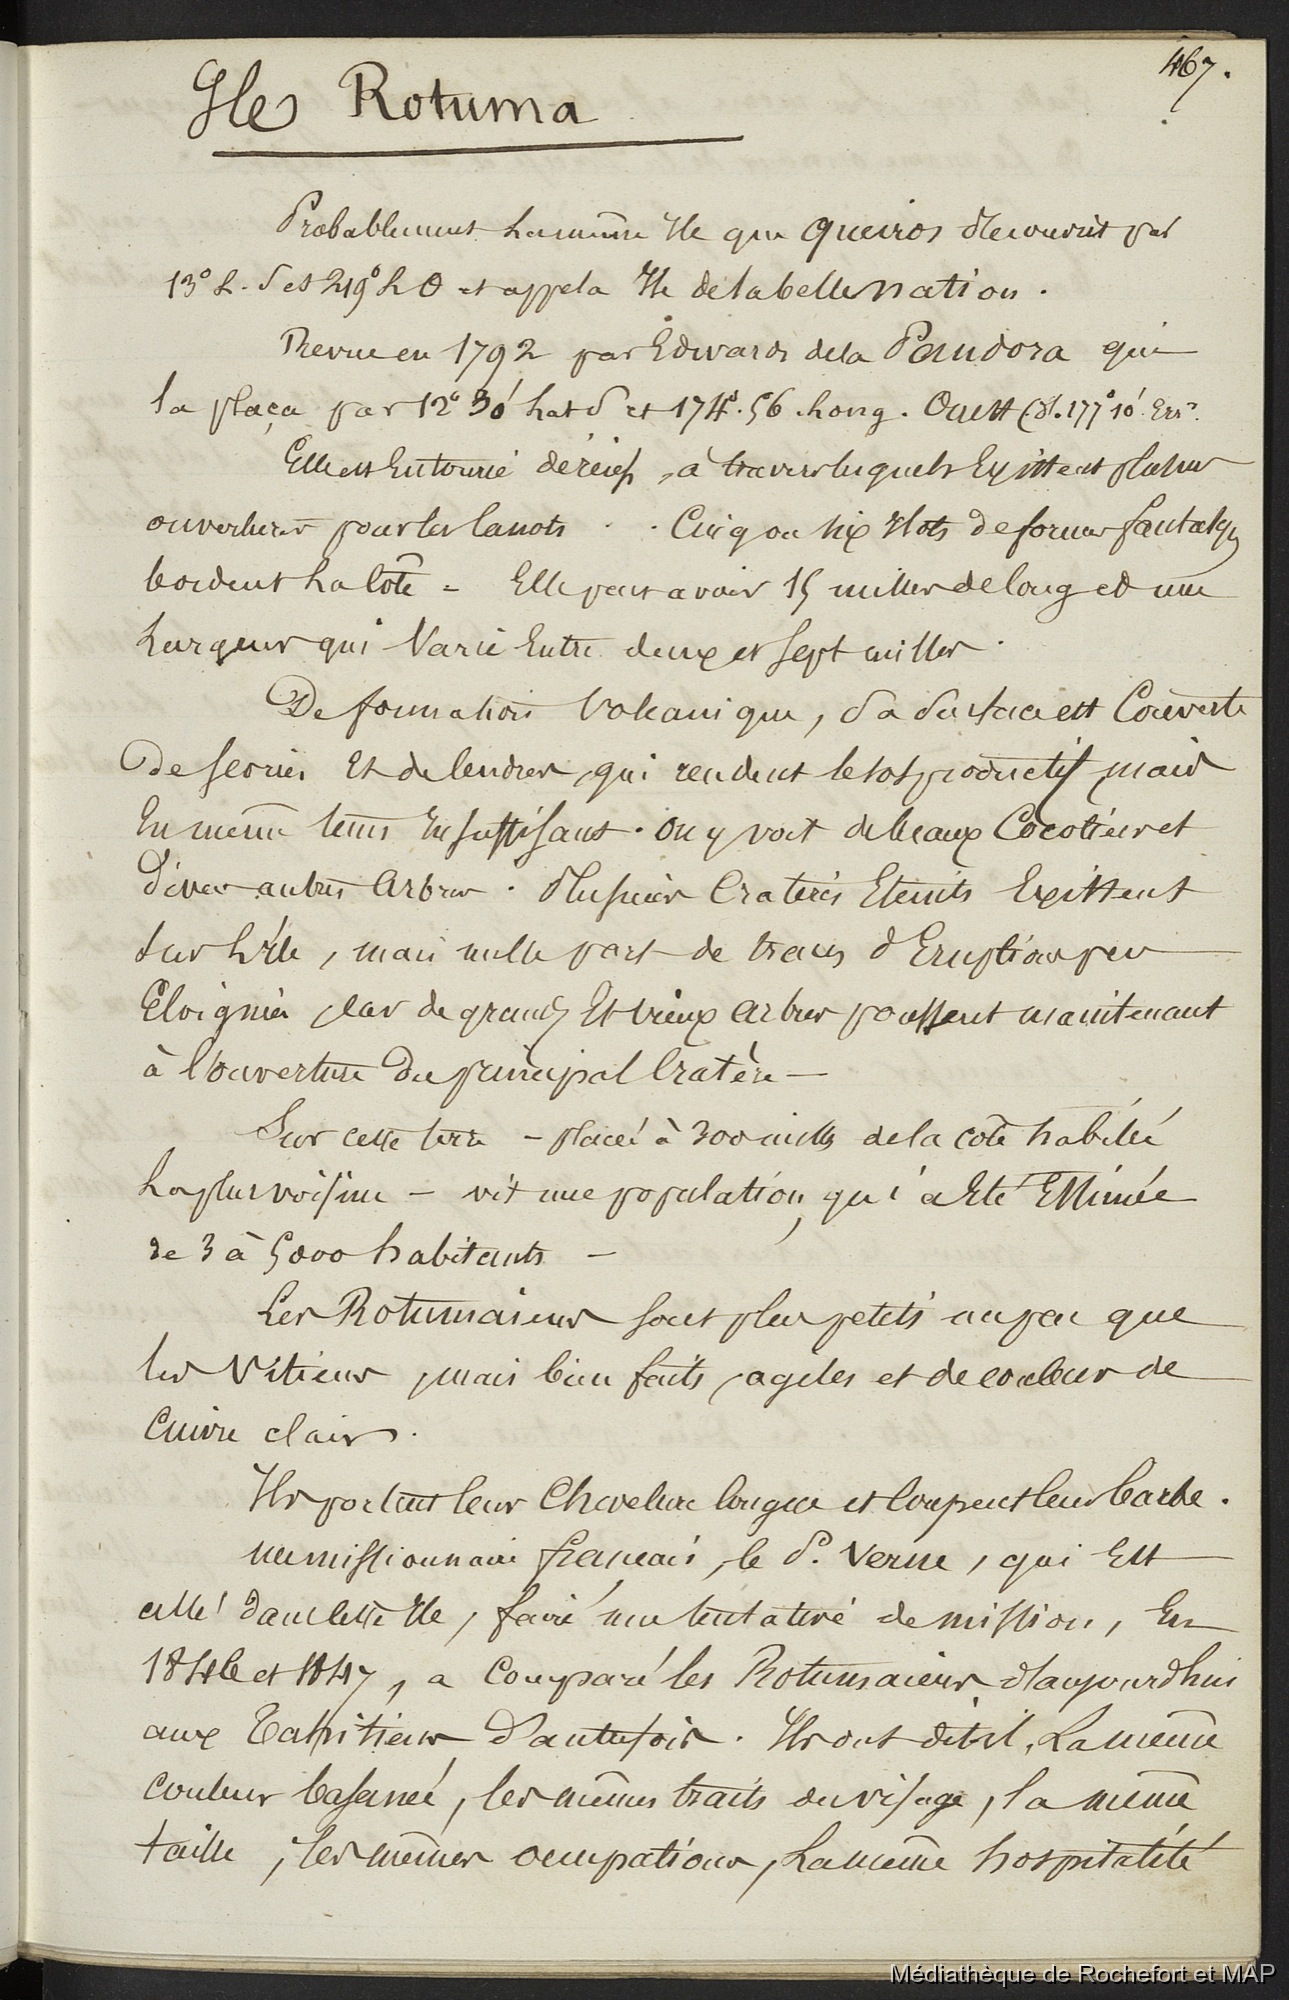 467.
Île Rotuma
Probablement la même Ile que Queiros découvrit par
13° L. S et 219° L O et appela Ile de la belle nation.
Revue en 1792 par Edwards de la Pandora qui
la plaça par 12° 30' Lat S et 174°.56 Long. Ouest (d'. 177° 10'
Elle est Entourée de récifs, à travers lesquels Existent plusieurs
ouvertures pour les Canots. Cinq ou six Ilots de formes fantasques
bordent la Côte = Elle peut avoir 15 milles de long et une
largeur qui Varie Entre deux et sept milles.
De formation Volcanique, Sa Surface est Couverte
De scories Et de Cendres, qui rendent le sol productif, mais
En même tems Insuffisant. On y voit de beaux Cocotiers et
Divers autres Arbres. Plusieurs Cratères Eteints Existent
sur l'Ile, mais nulle part de traces d'Eruptions peu
Eloignées, car de grands Et vieux Arbres poussent maintenant
à l'ouverture Du principal Cratère —
Sur cette terre — placée à 300 milles de la côte habitée
la plus voisine — vit une population, qui a Eté Estimée
de 3 à 5000 habitants —
Les Rotumaiens sont plus petits un peu que
les Vitiens, mais bien faits, agiles et de couleur de
Cuivre clair.
Ils portent leur Chevelure longue et Coupent leur barbe.
Un missionnaire français, le P. Verne, qui Est
allé dans cette Ile, faire une tentative de mission, En
1846 et 1847, a Comparé les Rotumaiens d'aujourd'hui
aux Tahitiens D'autrefois. Ils ont dit-il, la même
Couleur basanée, les mêmes traits du visage, la même
taille, les mêmes occupations, la même hospitalité
Médiathèque de Rochefort et MAP